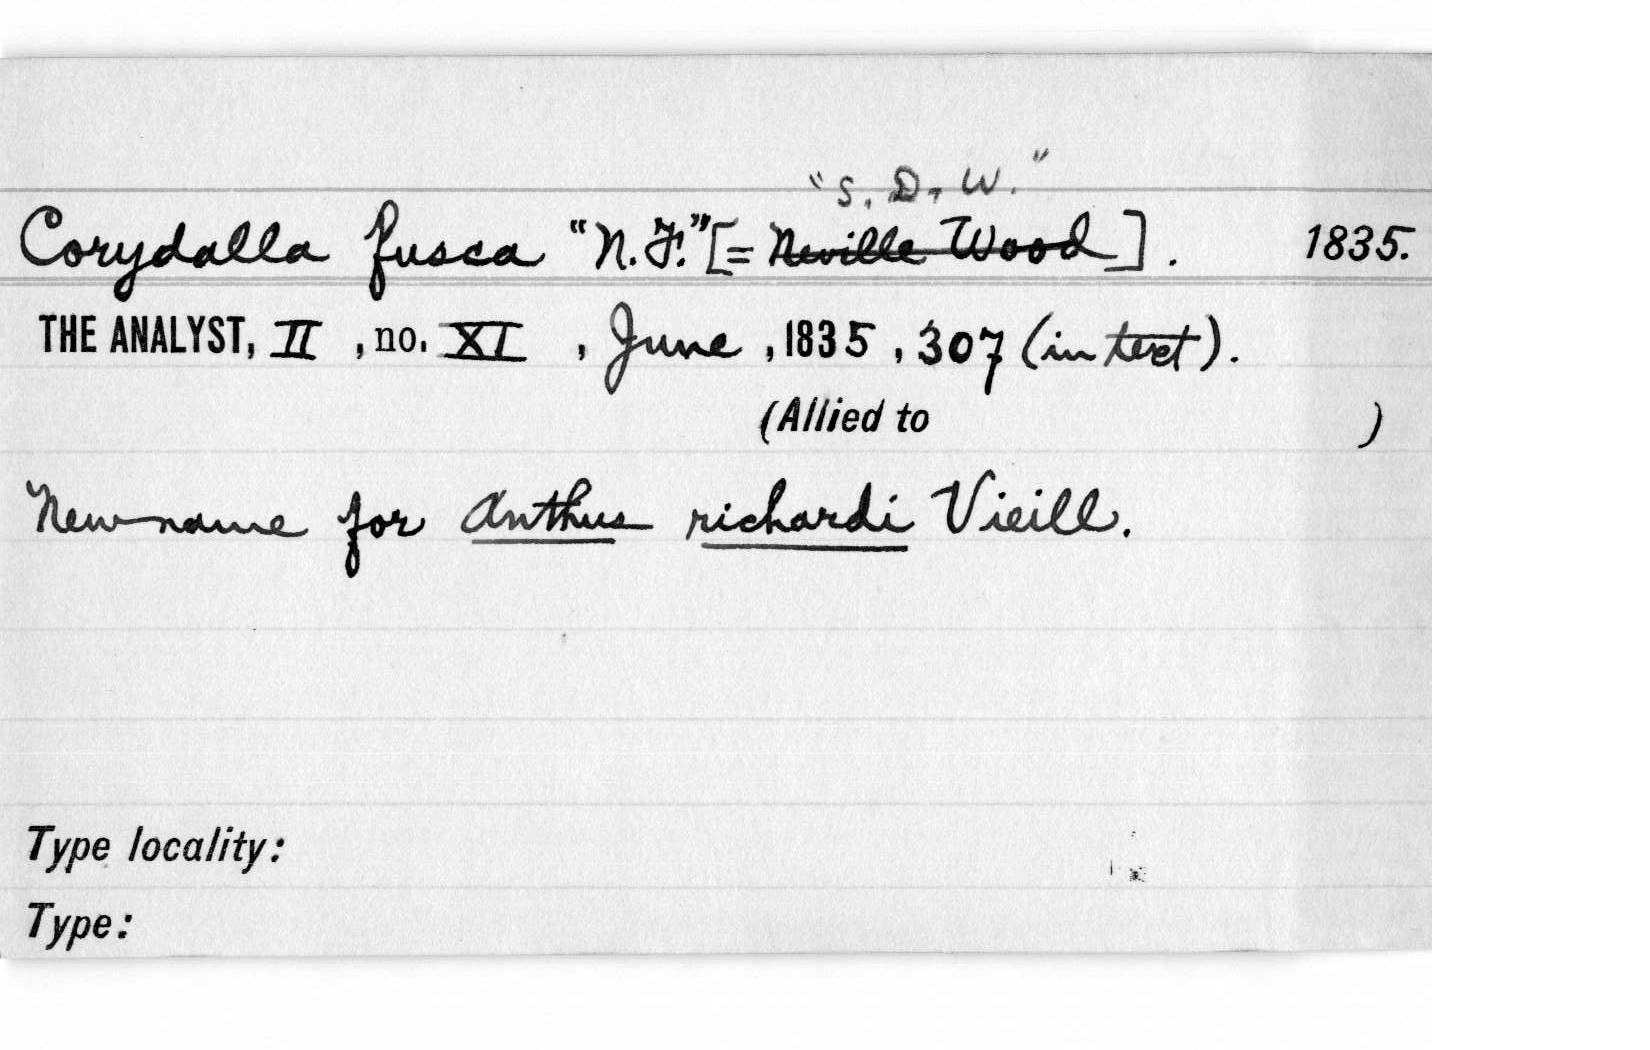 "S. D. W."
Corydalla fusca "N. F." [= Neville Wood]. 1835.
THE ANALYST, II , no. XI , June , 1835 , 307 (in text).
(Allied to )
New name for Anthus richardi Vieill.
Type locality:
Type: